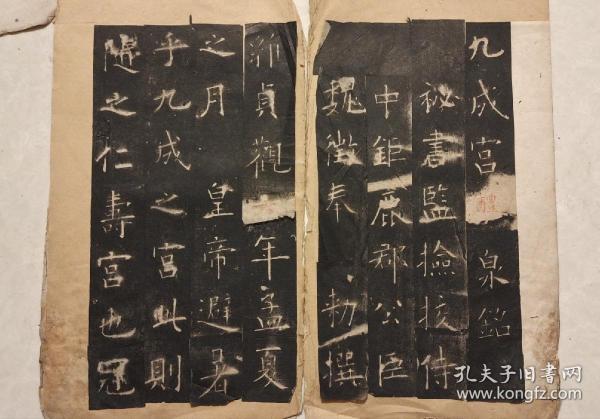 九成宫醴泉銘
秘書監撿挍侍
中鉅鹿郡公臣
魏徴奉 勑撰
維貞觀年孟夏
之月 皇帝避暑
乎九成之宫此則
隨之仁壽宫也冠
孔夫子旧书网
www.kongfz.com